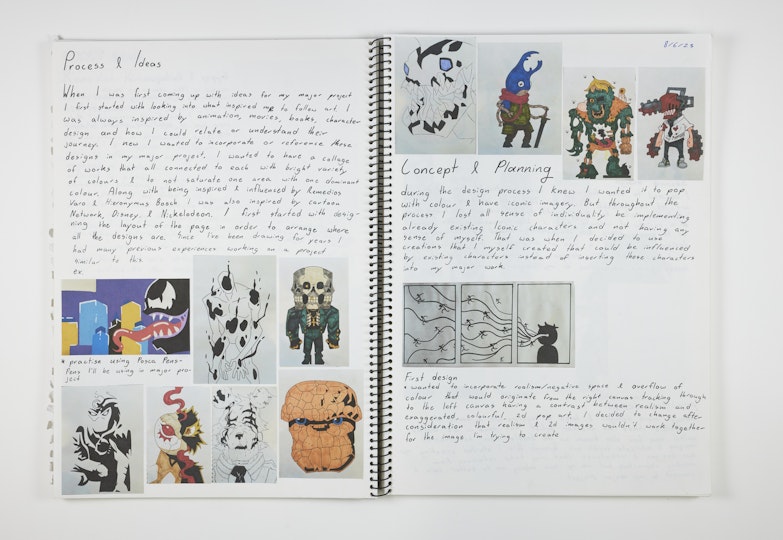 Process & Ideas
When I was first coming up with ideas for my major project
I first started with looking into what inspired me to follow art. I
was always inspired by animation, movies, books, character
design and how I could relate or understand their
journey. I new I wanted to incorporate or reference these
designs in my major project. I wanted to have a collage
of works that all connected to each with bright variety
of colours & to not saturate one area with one dominant
colour. Along with being inspired & influenced by Remedios
Varo & Hieronymus Bosch I was also inspired by cartoon
Network, Disney, & Nickelodeon. I first started with desig-
ning the layout of the page in order to arrange where
all the designs are. Since I've been drawing for years I
had many previous experiences working on a project
similar to this.
ex.
* practise using Posca Pens-
Pens I'll be using in major pro-
ject
8/6/23
Concept & Planning
during the design process I knew I wanted it to pop
with colour & have iconic imagery. But throughout the
process I lost all sense of individuality be implementing
already existing Iconic characters and not having any
sense of myself. That was when I decided to use
creations that I myself created that could be influenced
by existing characters instead of inserting those characters
into my major work.
First design
* wanted to incorporate realism/negative space & overflow of
colour that would originate from the right canvas tracking through
to the left canvas having a contrast between realism and
exaggerated, colourful, 2d pop art. I decided to change after
consideration that realism & 2d images wouldn't work together
for the image I'm trying to create